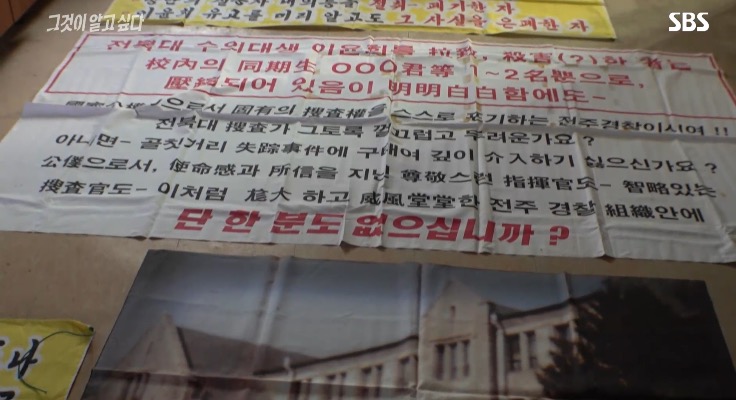 그것이 알고 싶다
SBS
그 사실을 은폐한 자
전북대 수의대생 이윤희를 拉致, 殺害(?)한 者는
校內의 同期生 OOO君等 1~2名으로,
壓縮되어 있음이 明明白白함에도-
固有의 搜査權을 스스로 포기하는 전주경찰이시여!!
전북대 搜査가 그토록 껄끄럽고 두려운가요?
아니면- 골칫거리 失踪事件에 구태여 깊이 介入하기 싫으신가요?
公僕으로서, 使命感과 所信을 지닌 尊敬스런 指揮官도- 智略있는
搜査官도- 이처럼 尨大하고 威風堂堂한 전주 경찰 組織안에
단 한 분도 없으십니까?
나